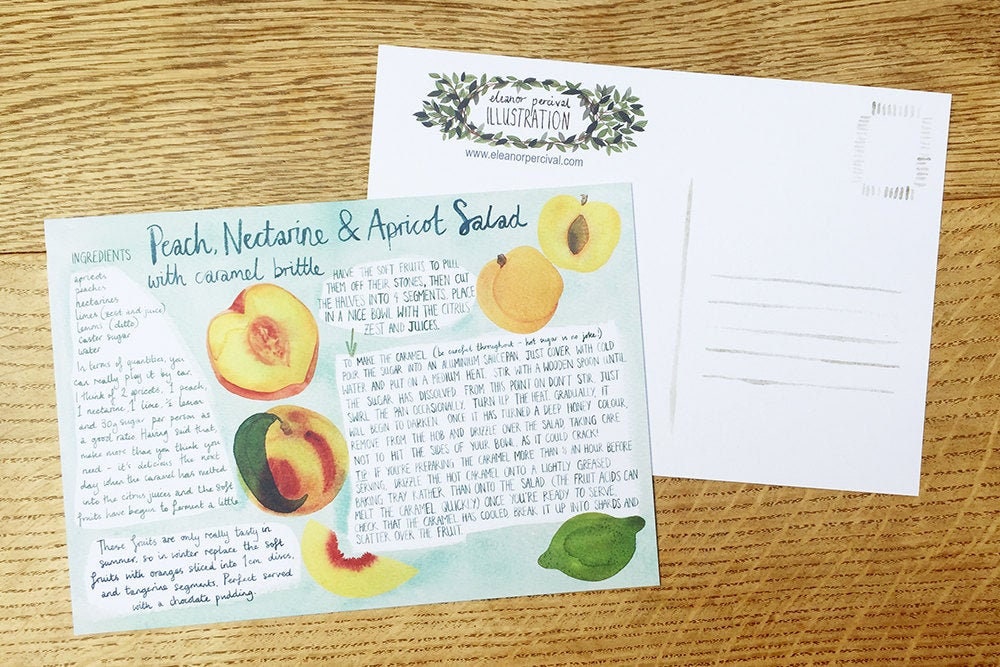 eleanor percival
ILLUSTRATION
www.eleanorpercival.com
Peach, Nectarine & Apricot Salad
with caramel brittle
INGREDIENTS
apricots
peaches
nectarines
limes (zest and juice)
lemons (ditto)
caster sugar
water
In terms of quantities, you
can really play it by ear.
I think of 2 apricots, 1 peach,
1 nectarine, 1 lime, ½ lemon
and 30g sugar per person as
a good ratio. Having said that,
make more than you think you
need - it's delicious the next
day when the caramel has melted
into the citrus juices and the soft
fruits have begun to ferment a little
These fruits are only really tasty in
summer, so in winter replace the soft
fruits with oranges sliced into 1cm discs,
and tangerine segments. Perfect served
with a chocolate pudding.
HALVE THE SOFT FRUITS TO PULL
THEM OFF THEIR STONES, THEN CUT
THE HALVES INTO 4 SEGMENTS. PLACE
IN A NICE BOWL WITH THE CITRUS
ZEST AND JUICES.
TO MAKE THE CARAMEL (be careful throughout - hot sugar is no joke!)
POUR THE SUGAR INTO AN ALUMINIUM SAUCEPAN. JUST COVER WITH COLD
WATER AND PUT ON A MEDIUM HEAT. STIR WITH A WOODEN SPOON UNTIL
THE SUGAR HAS DISSOLVED. FROM THIS POINT ON DON'T STIR, JUST
SWIRL THE PAN OCCASIONALLY. TURN UP THE HEAT. GRADUALLY, IT
WILL BEGIN TO DARKEN. ONCE IT HAS TURNED A DEEP HONEY COLOUR,
REMOVE FROM THE HOB AND DRIZZLE OVER THE SALAD TAKING CARE
NOT TO HIT THE SIDES OF YOUR BOWL AS IT COULD CRACK!
TIP: IF YOU'RE PREPARING THE CARAMEL MORE THAN ½ AN HOUR BEFORE
SERVING, DRIZZLE THE HOT CARAMEL ONTO A LIGHTLY GREASED
BAKING TRAY RATHER THAN ONTO THE SALAD (THE FRUIT ACIDS CAN
MELT THE CARAMEL QUICKLY) ONCE YOU'RE READY TO SERVE,
CHECK THAT THE CARAMEL HAS COOLED. BREAK IT UP INTO SHARDS AND
SCATTER OVER THE FRUIT.